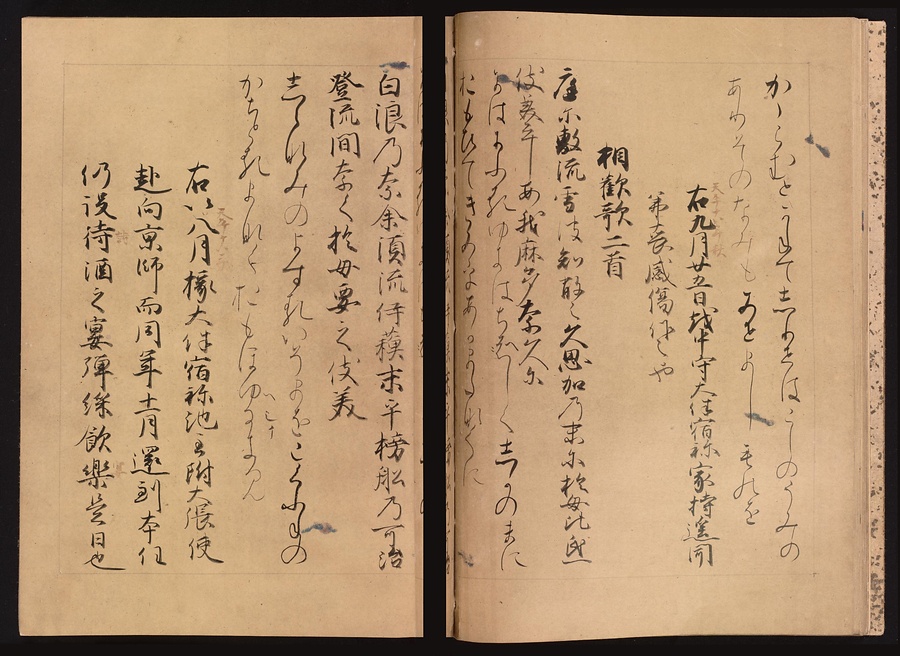 かゝらむとかねてしりせはこしのうみの
ありそのなみもみせましものを
右九月廿五日越中守大伴宿祢家持遥聞
弟喪感傷作之也
相歓歌二首
庭尓敷流雪波知敝之久思加乃未尓於母比氐
伎美乎安我麻多奈久尓
にはにふるゆきはちへしくしかのまに
おもひてきみをあかまたなくに
白浪乃奈余須流伊蘓末乎榜船乃可治
登流間奈久於母要之伎美
しらなみのよするいそまをこくふねの
かちとるまなくおもほゆ
右以八月掾大伴宿祢池主附大帳使
赴向京師而同年十一月還到本任
仍設待酒之宴弾絲飲樂是日也